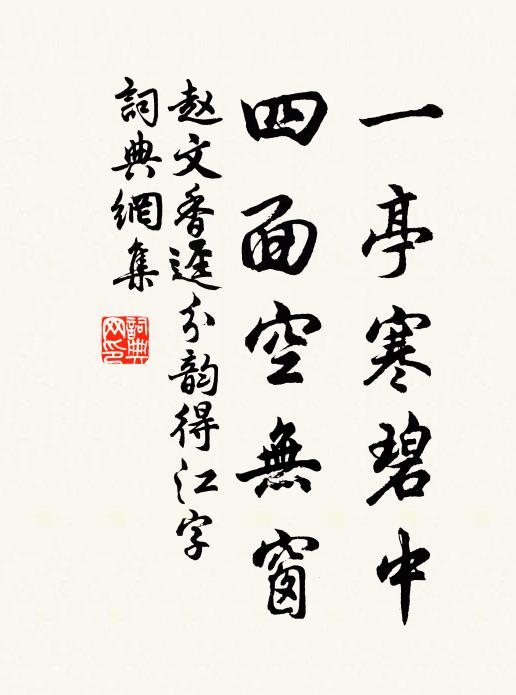 一亭寒碧中
四面空無窗
赵文香遥分韵得江字
詞典網集
詞典網印